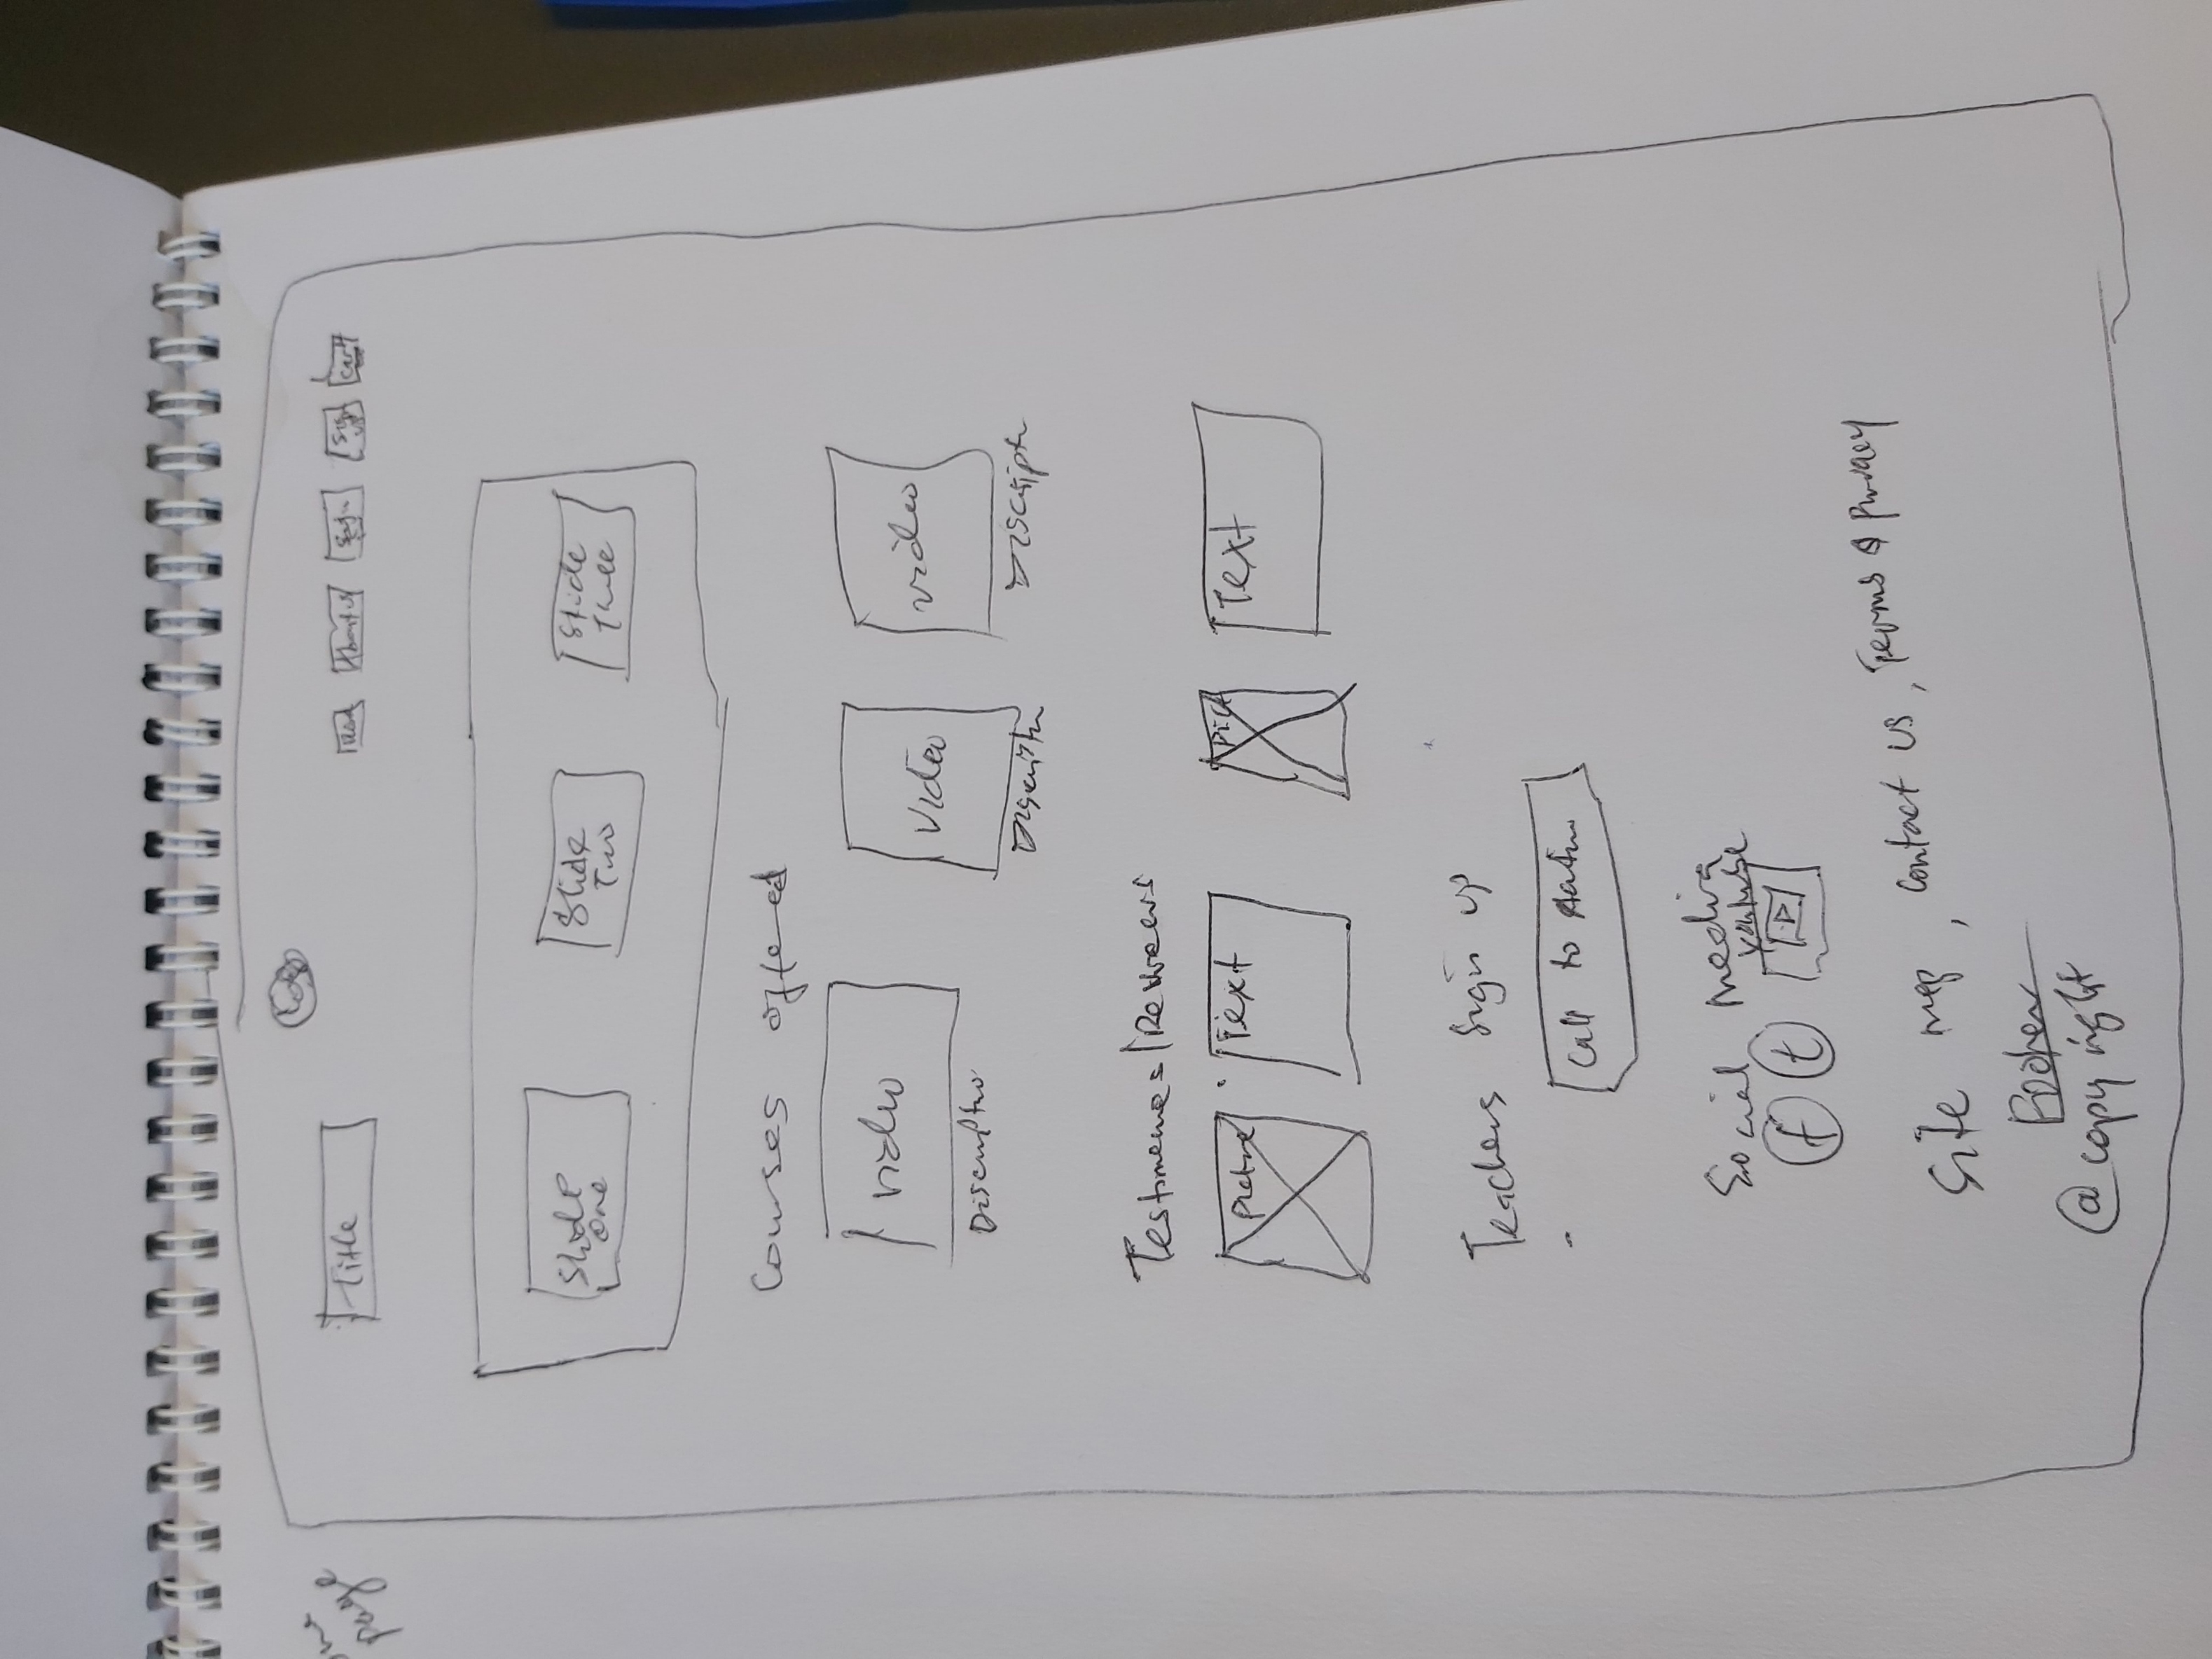 page
Logo
Title
About us
Sign up
Cart
Slide One
Slide Two
Slide Three
Courses offered
video
Video
video
Discription
Discription
Discription
Testimonies/Reviews
Picture
Text
Pict
Text
Teachers Sign up
Call to Action
Social media
youtube
f t
Site map, Contact us, Terms & Privacy
Footer
@ copy right